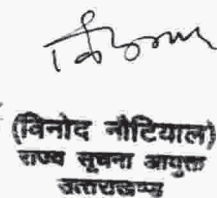 (विनोद नौटियाल)
राज्य सूचना आयुक्त
उत्तराखण्ड